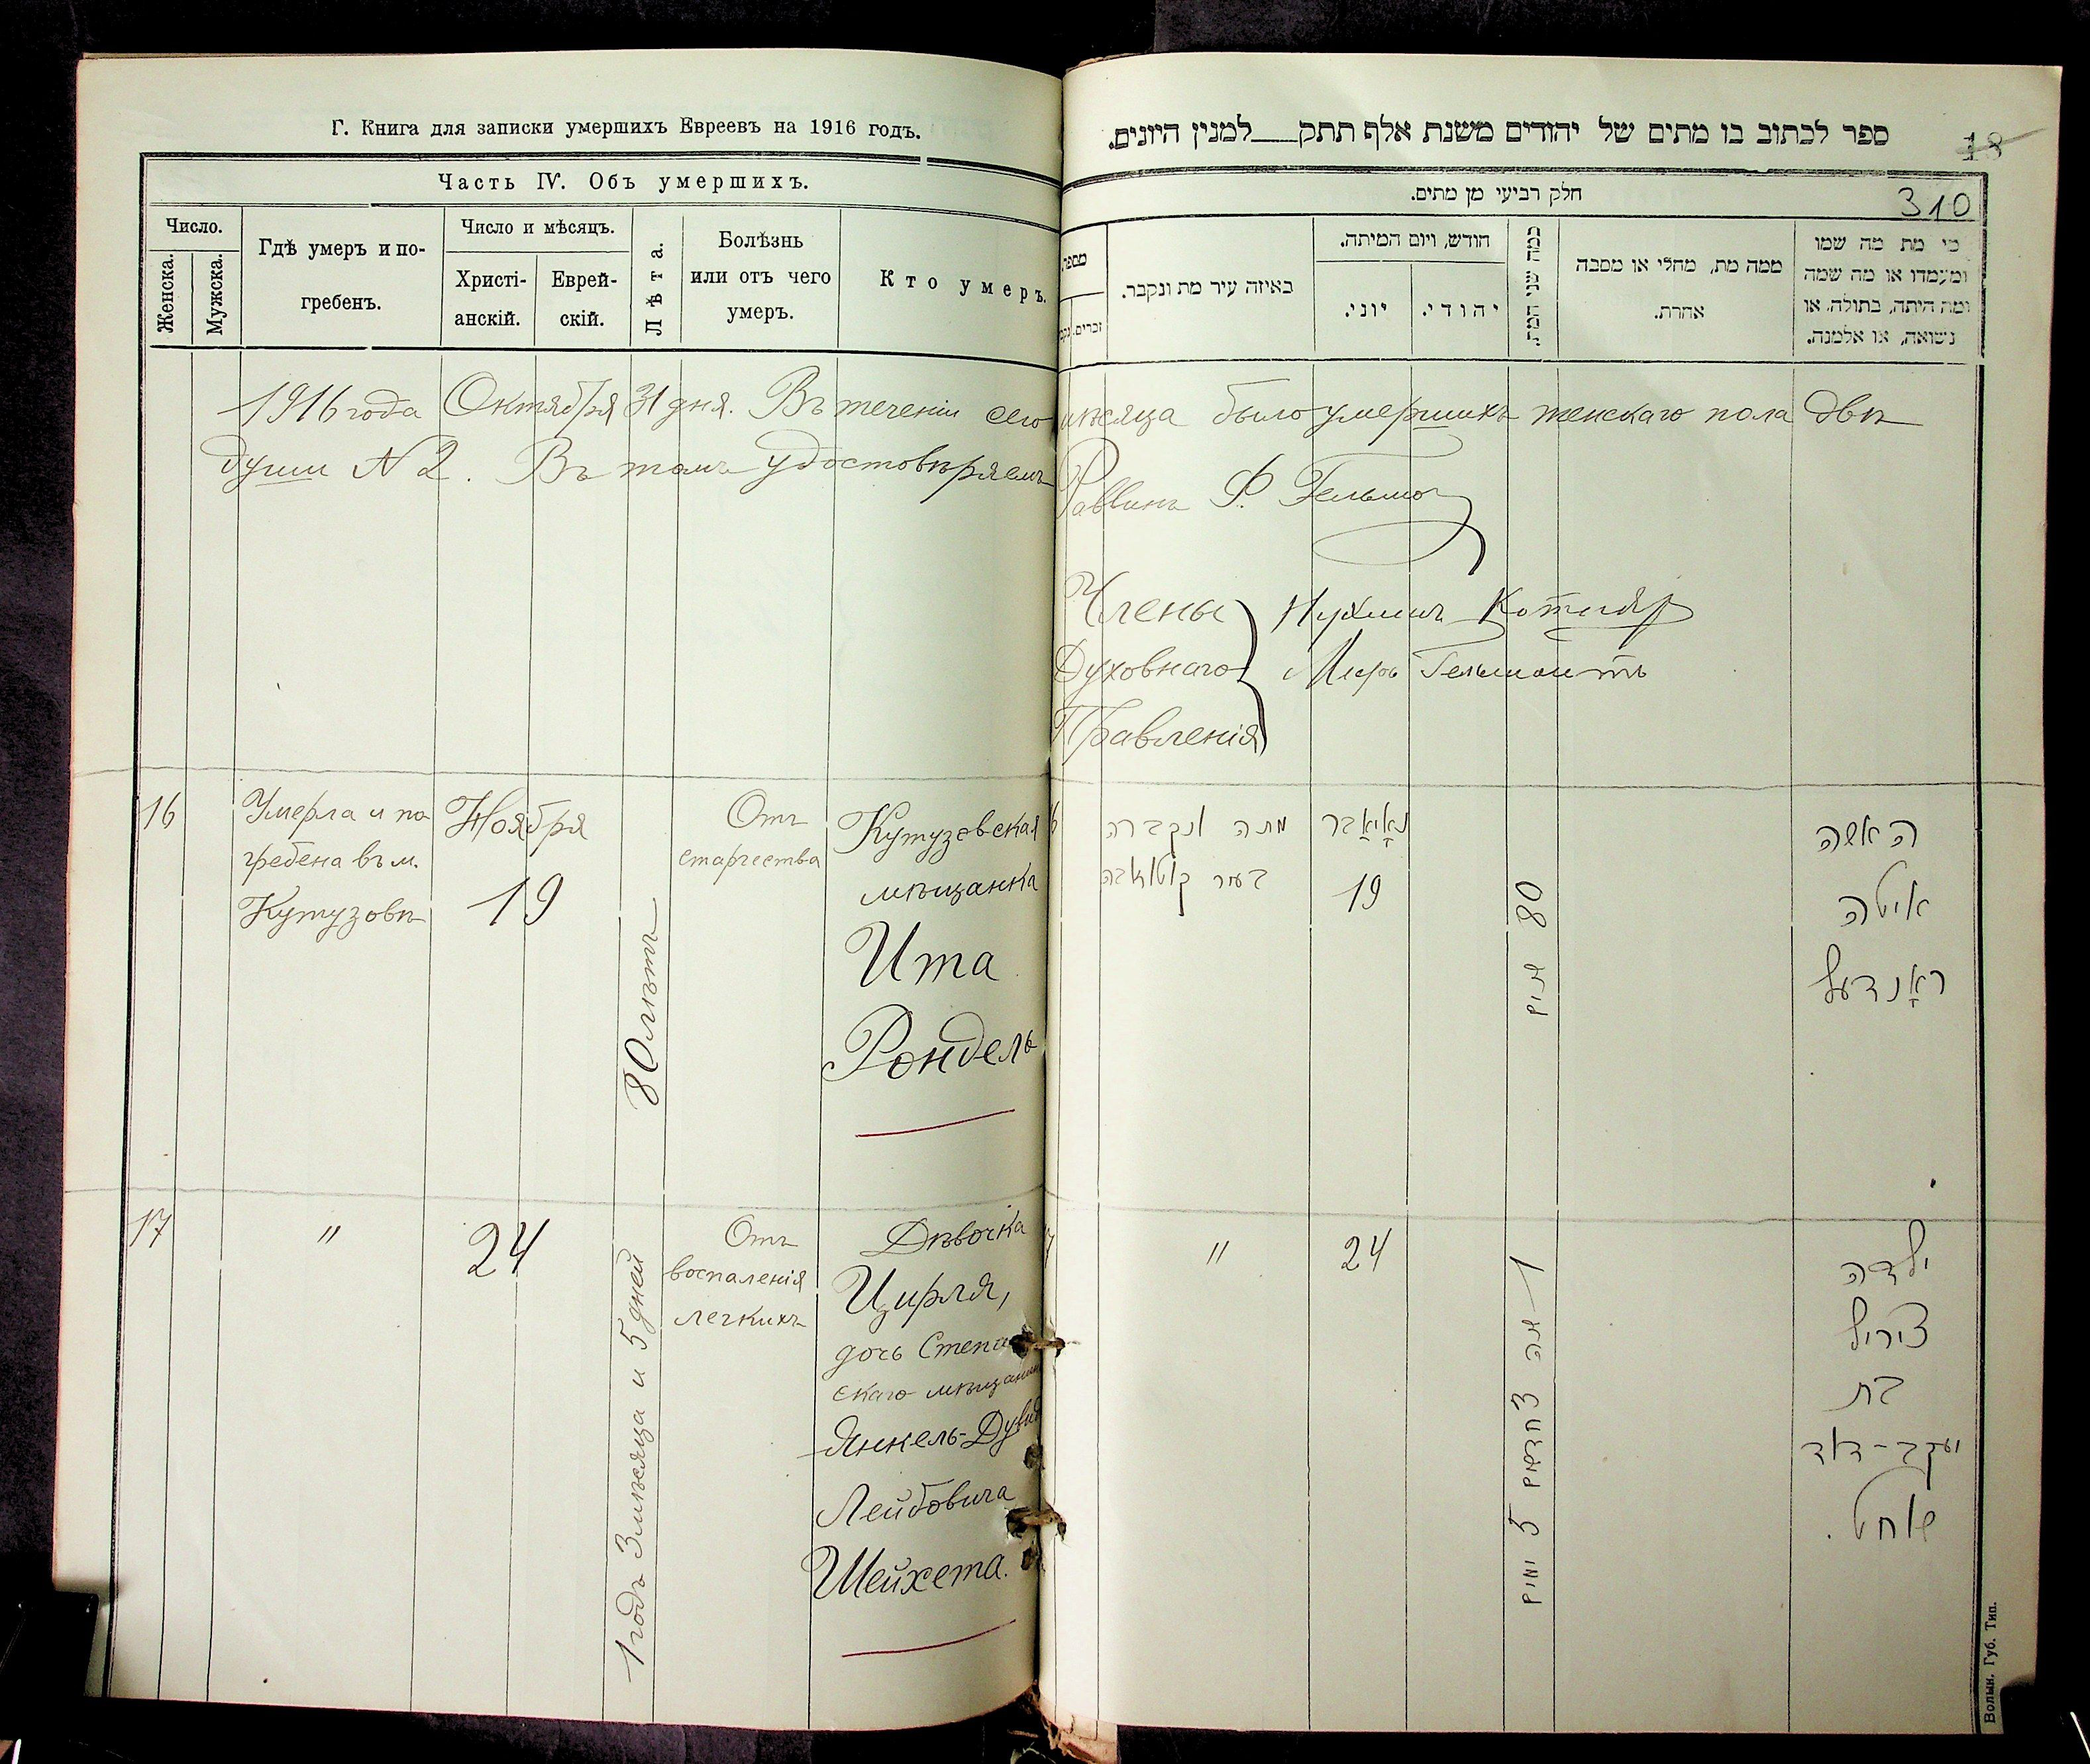 Г. Книга для записки умершихъ Евреевъ на 1916 годъ.
Часть IV. Объ умершихъ.
Число.
Женска.
Мужска.
Гдѣ умеръ и по-
гребенъ.
Число и мѣсяцъ.
Христі-
анскій.
Еврей-
скій.
Лѣта.
Болѣзнь
или отъ чего
умеръ.
Кто умеръ.
ספר לכתוב בו מתים של יהודים משנת אלף תתק למנין היונים.
18
310
חלק רביעי מן מתים.
מספר
זכרים.
באיזה עיר מת ונקבר.
חודש, ויום המיתה.
יוני.
יהודי.
כמה שני המת.
ממה מת, מחלי או מסבה
אחרת.
מי מת מה שמו
ומעמדו או מה שמה
ומה היתה, בתולה, או
נשואה, או אלמנה.
1916 года Октября 31 дня. Въ теченіи сего мѣсяца было умершихъ женскаго пола двѣ
души N 2. Въ томъ удостовѣряемъ
Раввинъ Ф. Гельман
Члены
Духовнаго
Правленія
Котляр
Гельманъ
16
Умерла и по
гребена въ м.
Кутузовѣ
Ноября
19
80 лѣтъ
Отъ
старчества
Кутузовская
мѣщанка
Ита
Рондель
מתה ונקברה
בעיר קוטוזובה
נאָיאַבר
19
80 שנים
האשה
איטה
ראָנדעל
17
"
24
1 годъ 3 мѣсяца и 5 дней
Отъ
воспаленія
легкихъ
Дѣвочка
Цирля,
дочь Степан
скаго мѣщанина
Янкель-Дувид
Лейбовича
Шейхета.
"
24
1 שנה 3 חדשים 5 ימים
ילדה
ציריל
בת
יעקב-דוד
שוחט.
Волын. Губ. Тип.